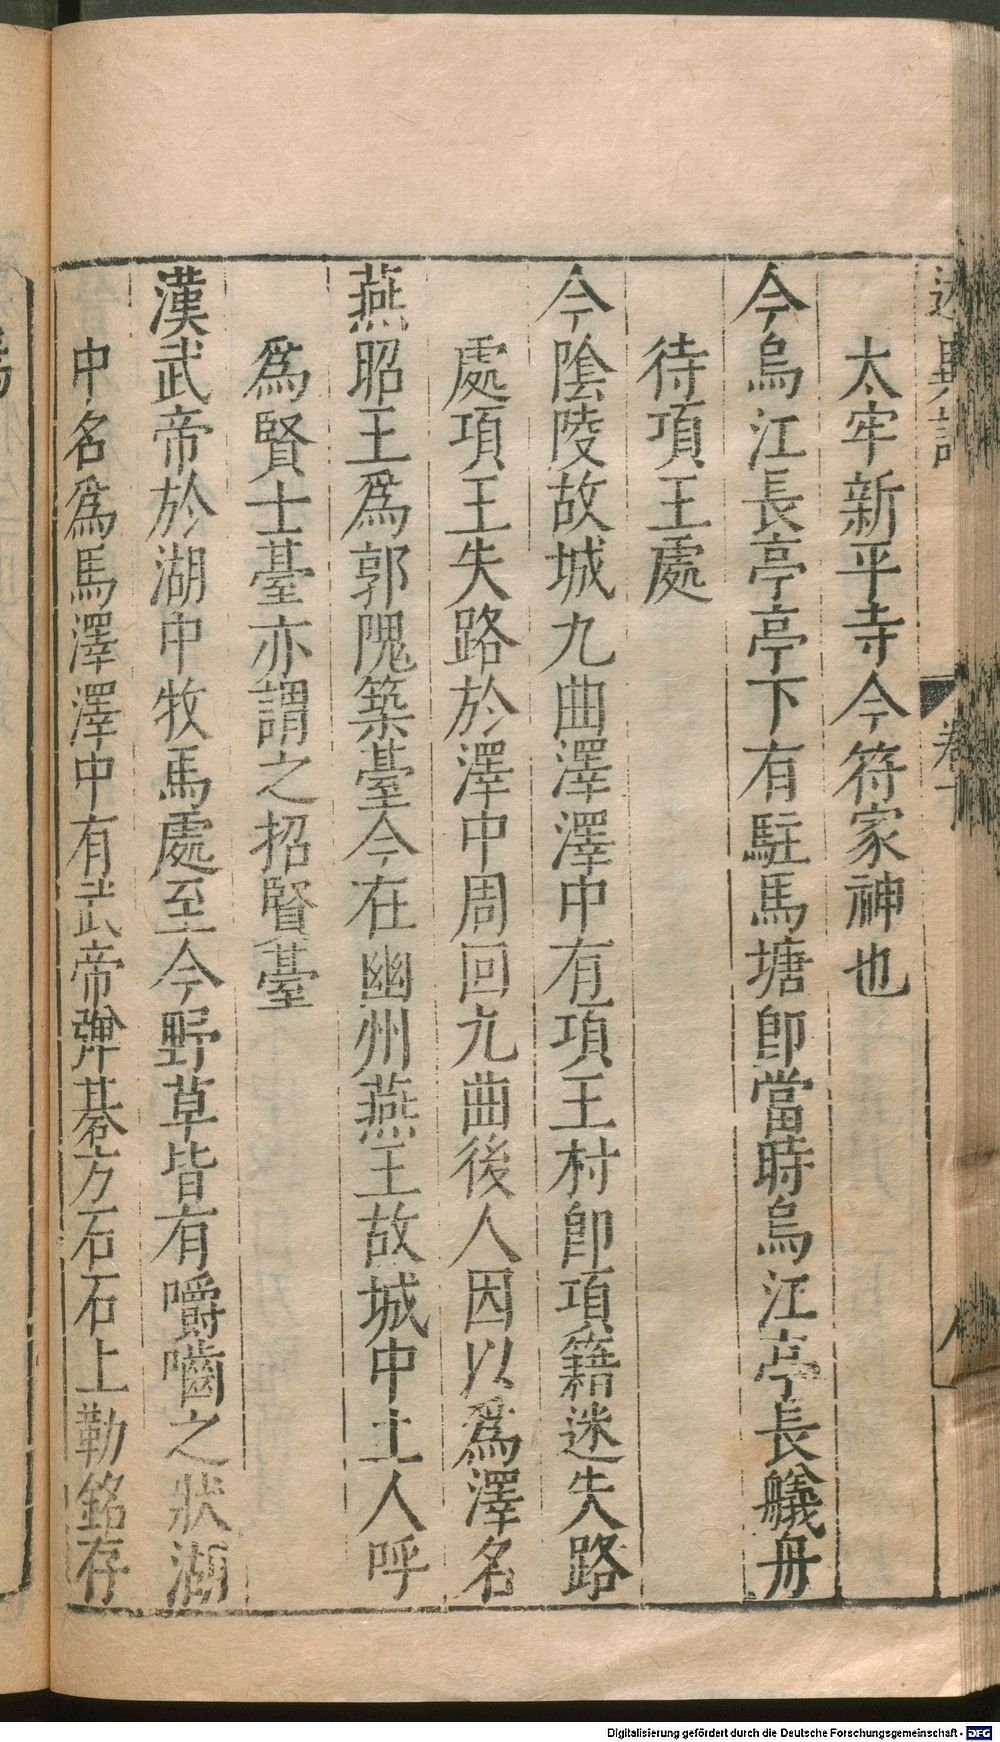 述異記 卷下
太牢新平寺今符家神也
今烏江長亭亭下有駐馬塘卽當時烏江亭長艤舟
待項王處
今陰陵故城九曲澤澤中有項王村卽項籍迷失路
處項王失路於澤中周回九曲後人因以爲澤名
燕昭王爲郭隗築臺今在幽州燕王故城中土人呼
爲賢士臺亦謂之招賢臺
漢武帝於湖中牧馬處至今野草皆有嚼嚙之狀湖
中名爲馬澤澤中有武帝彈碁方石石上勒銘存
Digitalisierung gefördert durch die Deutsche Forschungsgemeinschaft - DFG